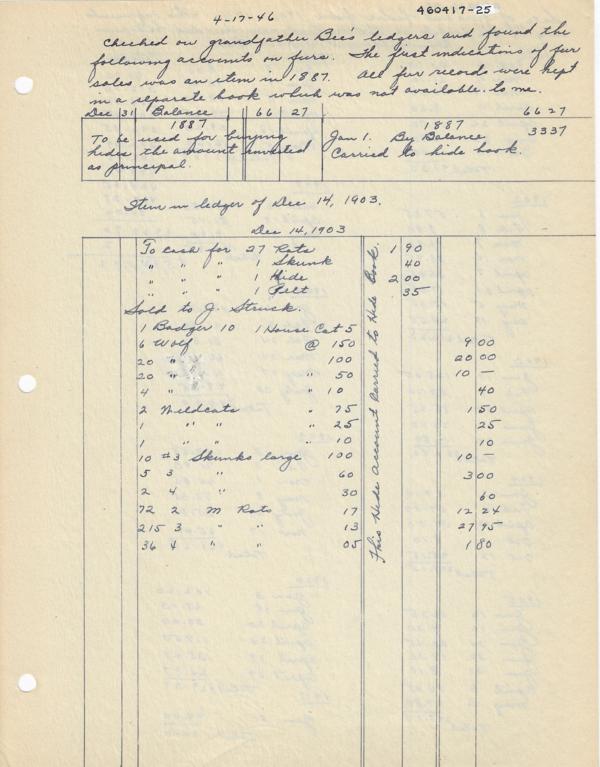 4-17-46
460417-25
Checked on grandfather Bee's ledgers and found the
following accounts on furs. The first indications of fur
sales was an item in 1887. All fur records were kept
in a separate book which was not available to me.
Dec 31 Balance 66 27
1887
To be used for buying
hides the amount invested
as principal.
1887 66 27
Jan 1. By Balance 33 37
Carried to hide book.
Item in ledger of Dec 14, 1903.
Dec 14, 1903
To cash for 27 Rats 1 90
" " " 1 Skunk 40
" " " 1 Hide 2 00
" " " 1 Pelt 35
Sold to J. Struck.
1 Badger 10 1 House Cat 5
6 Wolf @ 150 9 00
20 " 100 20 00
20 " " 50 10 —
4 " " 10 40
2 Wildcats " 75 1 50
1 " " " 25 25
1 " " " 10 10
10 #3 Skunks large 100 10 —
5 3 " 60 3 00
2 4 " 30 60
72 2 M Rats 17 12 24
215 3 " " 13 27 95
36 4 " " 05 1 80
This Hide account carried to Hide Book.